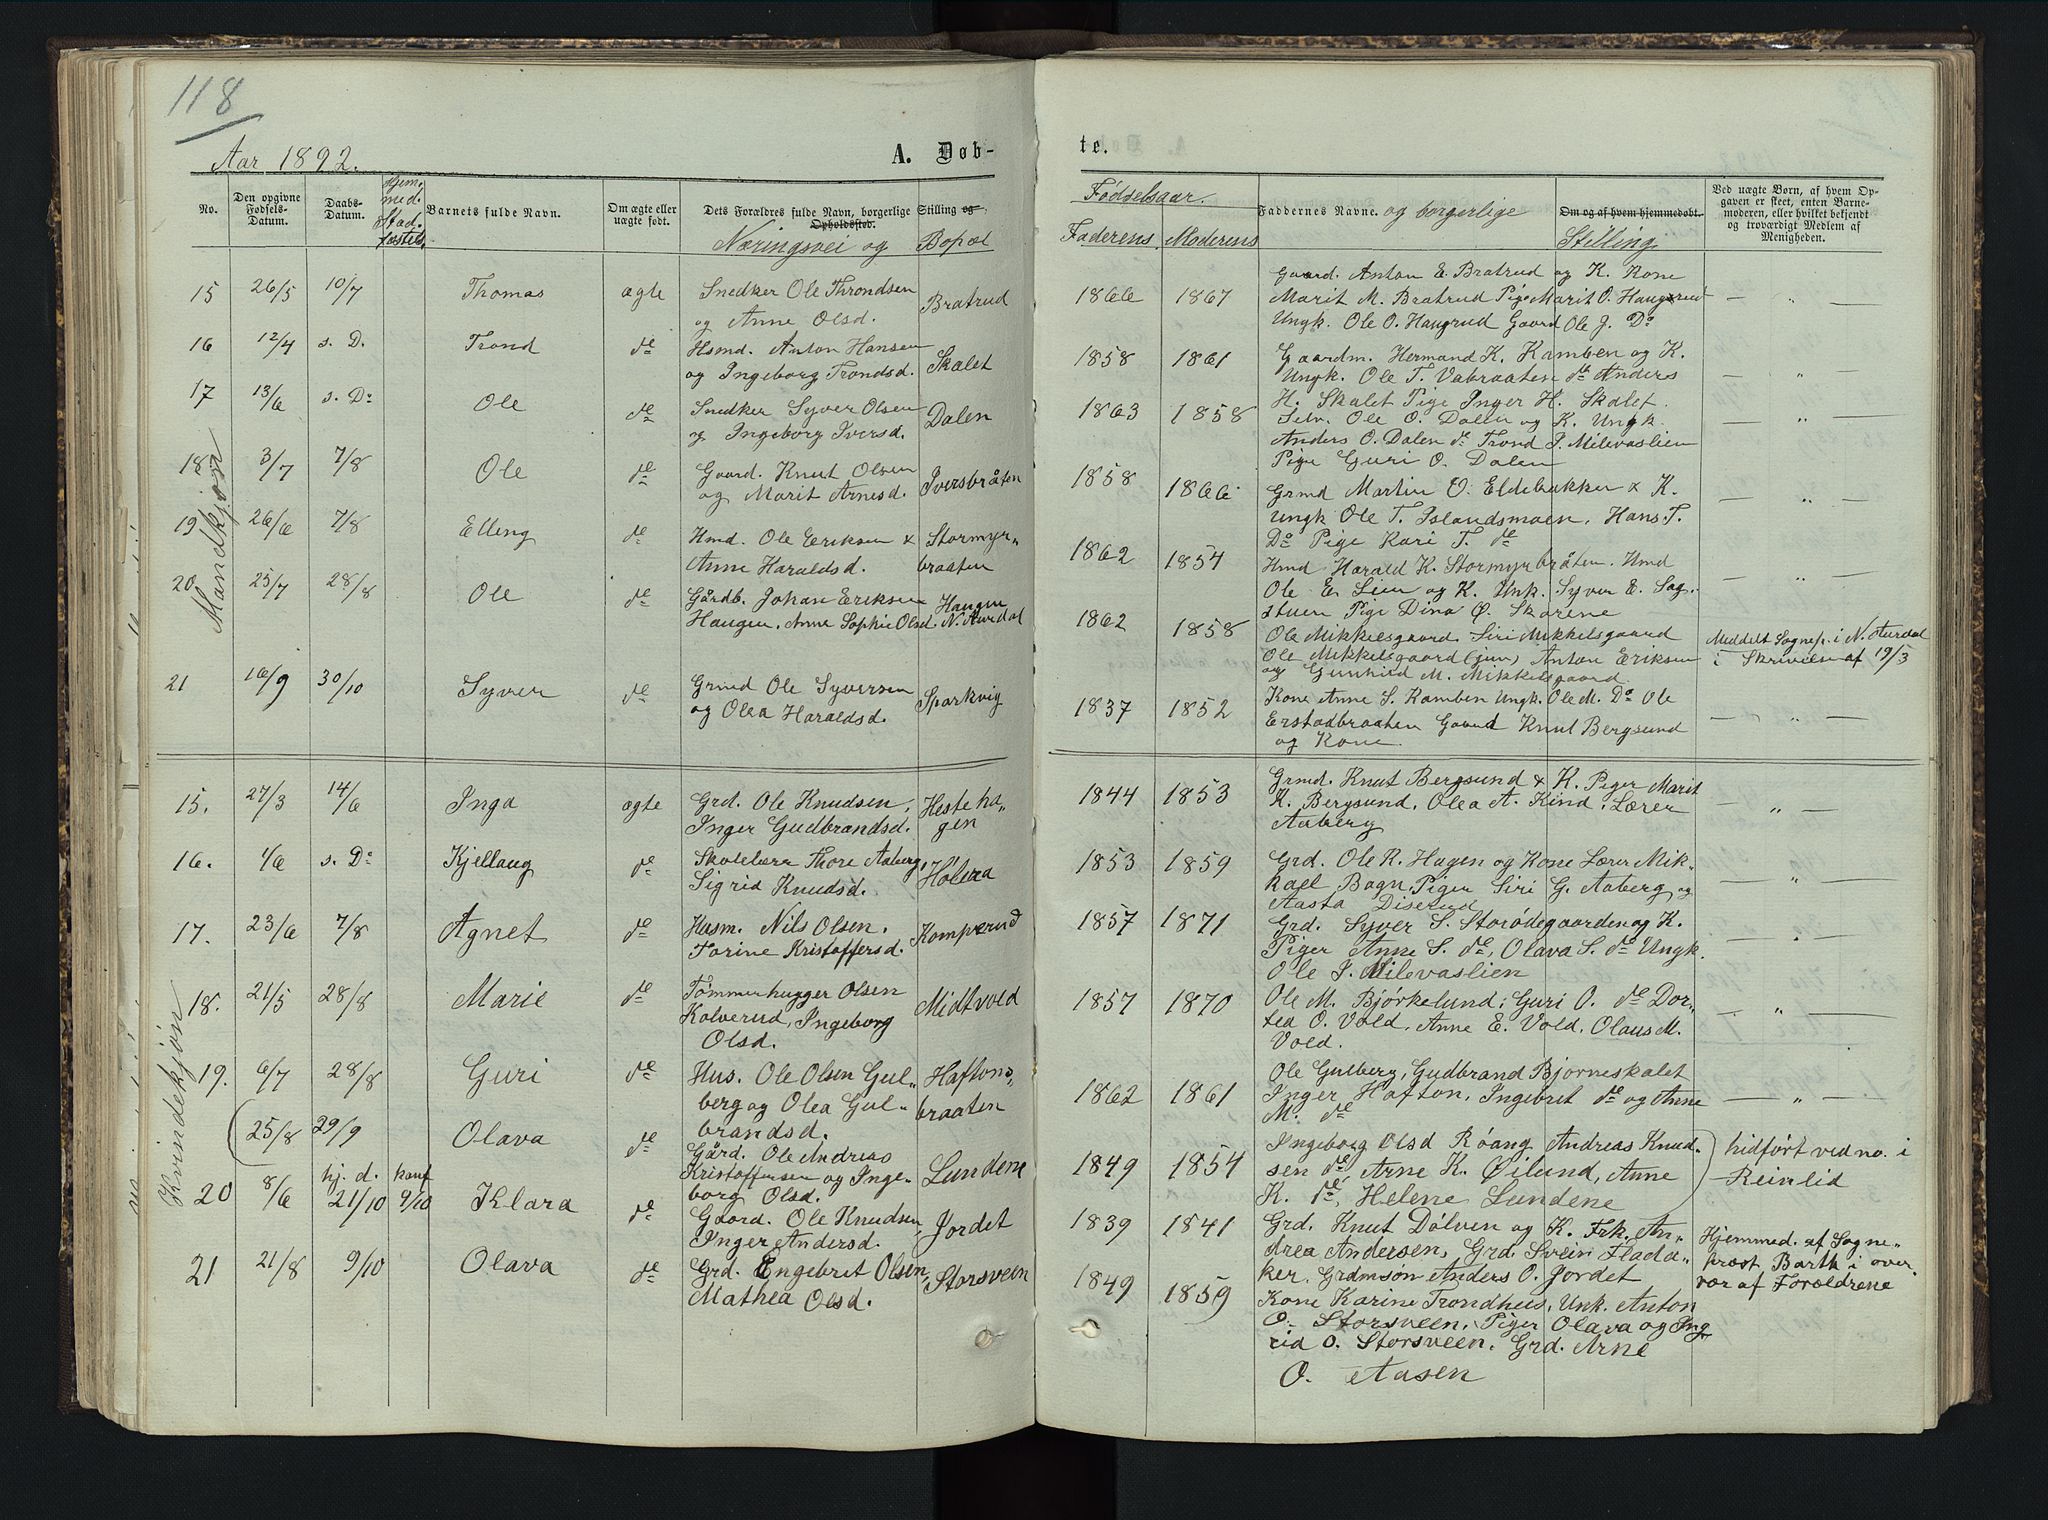 118
Aar 1892.
A. Døb-
te.
No.
Den opgivne Fødsels-Datum.
Daabs-Datum.
Hjem. med. Stad. fæstels.
Barnets fulde Navn.
Om ægte eller uægte født.
Dets Forældres fulde Navn, borgerlige Stilling og Opholdssted.
Næringsvei og Bopæl
Fødselsaar.
Faderens Moderens
Faddernes Navne. og borgerlige Stilling
Om og af hvem hjemmedøbt.
Ved uægte Børn, af hvem Op-
gaven er skeet, enten Barne-
moderen, eller hvilket bekjendt
og troværdigt Medlem af
Menigheden.
Mandkjøn
15 26/5 10/7 Thomas ægte Snedker Ole Throndsen
og Anne Olsd. Bratrud
1866 1867
Gaard. Anton E. Bratrud og K. Kone
Marit M. Bratrud Pige Marit O. Haugerud
Ungk. Ole O. Haugrud Gaard Ole J. Do
— " —
16 12/4 s. D. Trond de Hsmd. Anton Hansen
og Ingeborg Trondsd. Skalet
1858 1861
Gaardm. Hermand K. Kamben og K.
Ungk. Ole T. Vabraaten de Anders
H. Skalet Pige Inger H. Skalet.
— " —
17 13/6 s. Do Ole de Snedker Syver Olsen
og Ingeborg Iversd. Dalen
1863 1858
Selv. Ole O. Dalen og K. Ungk.
Anders O. Dalen de Trond I. Milevaslien
Pige Guri O. Dalen
— " —
18 3/7 7/8 Ole de Gaard. Knut Olsen
og Marit Arnesd. Iversbråten
1858 1866
Grmd Martin O. Eldebakken & K.
Ungk Ole T. Islandsmoen, Hans T.
Do Pige Kari T. de
— " —
19 26/6 7/8 Elling de Hmd. Ole Eriksen &
Anne Haraldsd. Stormyr-
braaten
1862 1854
Hmd Harald K. Stormyrbråten. Hmd
Ole E. Lien og K. Unk. Syver E. Sag-
stuen Pige Dina Ø. Skarene
— " —
20 25/7 28/8 Ole de Gårdb. Johan Eriksen
Haugen, Anne Sophie Olsd. Haugen
N. Aurdal
1862 1858
Ole Mikkelsgaard Siri Mikkelsgaard
Ole Mikkelsgaard (jun) Anton Eriksen
og Gunhild M. Mikkelsgaard
Meddelt Sognep. i N. Aurdal
i Skrivelse af 19/3
21 16/9 30/10 Syver de Grmd Ole Syversen
og Olea Haraldsd. Sparkvig
1837 1852
Kone Anne S. Kamben Ungk. Ole M. Do Ole
Erstadbraaten Gaard Knut Bergsund
og Kone.
— " —
Kvindekjøn
15. 27/3 14/6 Inga ægte Grd. Ole Knudsen,
Inger Gudbrandsd. Hesteha-
gen
1844 1853
Grmd. Knut Bergsund & K. Piger Marit
K. Bergsund, Olea A. Kind. Lærer
Aaberg
— " —
16. 4/6 s. Do Kjellaug de Skolelærer Thore Aaberg,
Sigrid Knudsd. Hólera
1853 1859
Grd. Ole R. Hagen og Kone Lærer Mik-
kael Bagn. Piger Siri G. Aaberg og
Aasta Diserud
— " —
17. 23/6 7/8 Agnet de Husm. Nils Olsen.
Torine Kristoffersd. Komperud
1857 1871
Grd. Syver S. Storødegaarden og K.
Piger Anne S. de, Olava S. do Ungk.
Ole I. Milevaslien
— " —
18. 21/5 28/8 Marie de Tømmerhugger Olsen
Kolverud, Ingeborg
Olsd. Midtvold
1857 1870
Ole M. Bjørkelund; Guri O. de Dor-
tea O. Vold, Anne E. Vold, Olaus M.
Vold.
— " —
19. 6/7 28/8 Guri de Hus. Ole Olsen Gul-
berg og Olea Gul-
brandsd. Haftons-
braaten
1862 1861
Ole Gulberg, Gudbrand Bjørneskalet
Inger Hafton, Ingebret de og Anne
M. de
— " —
25/8 29/9 Olava de Gård. Ole Andreas
Kristoffersen og Inge-
borg Olsd. Lundene
1849 1854
Ingeborg Olsd Róang Andreas Knud-
sen de, Arne K. Øilund, Anne
K. de, Helene Lundene
hidført ved no. i
Reinlid
20 8/6 hj. d. 21/10 9/10 Klara de Gaard. Ole Knudsen,
Inger Andersd. Jordet
1839 1841
Grd. Knut Dólven og K. Frk. An-
drea Andersen, Grd. Svein Flada-
ker. Grdmsøn Anders O. Jordet
Hjemmed. af Sogne-
præst Barth i over-
vær af Forældrene
21 21/8 9/10 Olava de Grd. Engebret Olsen,
Mathea Olsd. Storsveen
1849 1859
Kone Karine Trondhus, Unk. Anton
O. Storsveen, Piger Olava og Ing-
rid O. Storsveen. Grd. Arne
O. Aasen